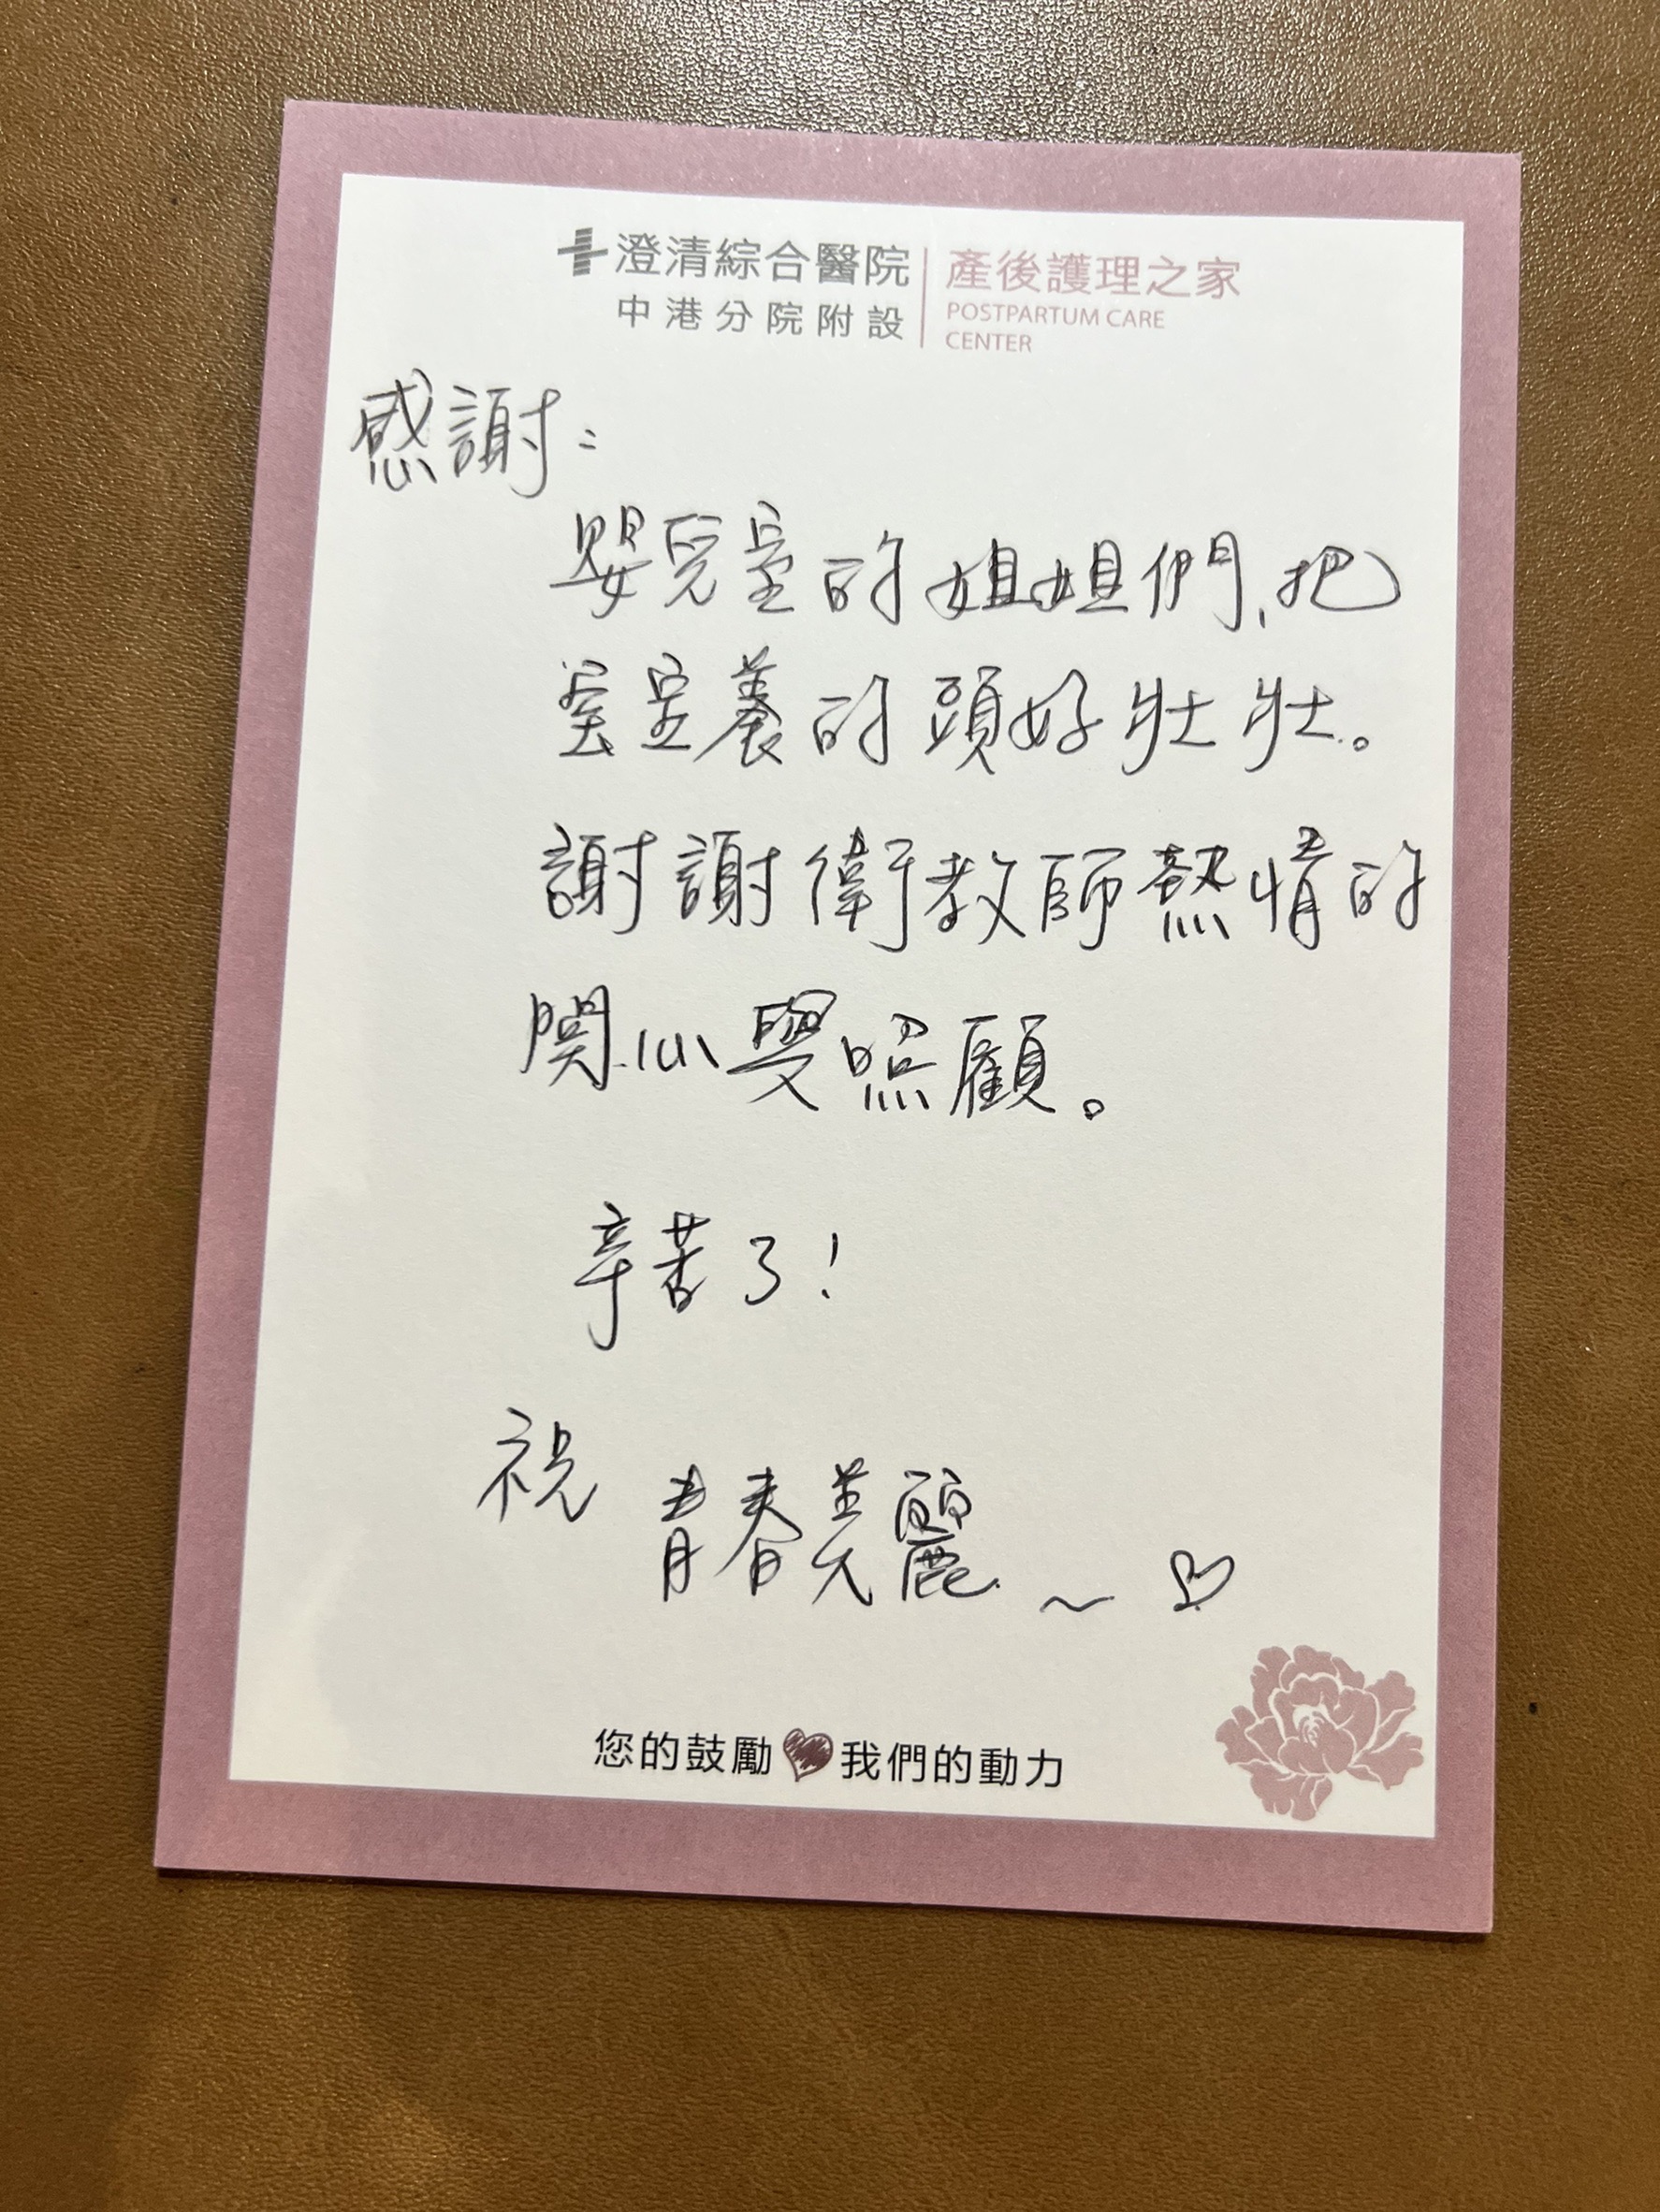 澄清綜合醫院
中港分院附設
產後護理之家
POSTPARTUM CARE
CENTER
感謝：
嬰兒室的姐姐們,把
宝宝養的頭好壯壯。
謝謝衛教師熱情的
関心與照顧。
辛苦了!
祝 青春美麗~♡
您的鼓勵 我們的動力